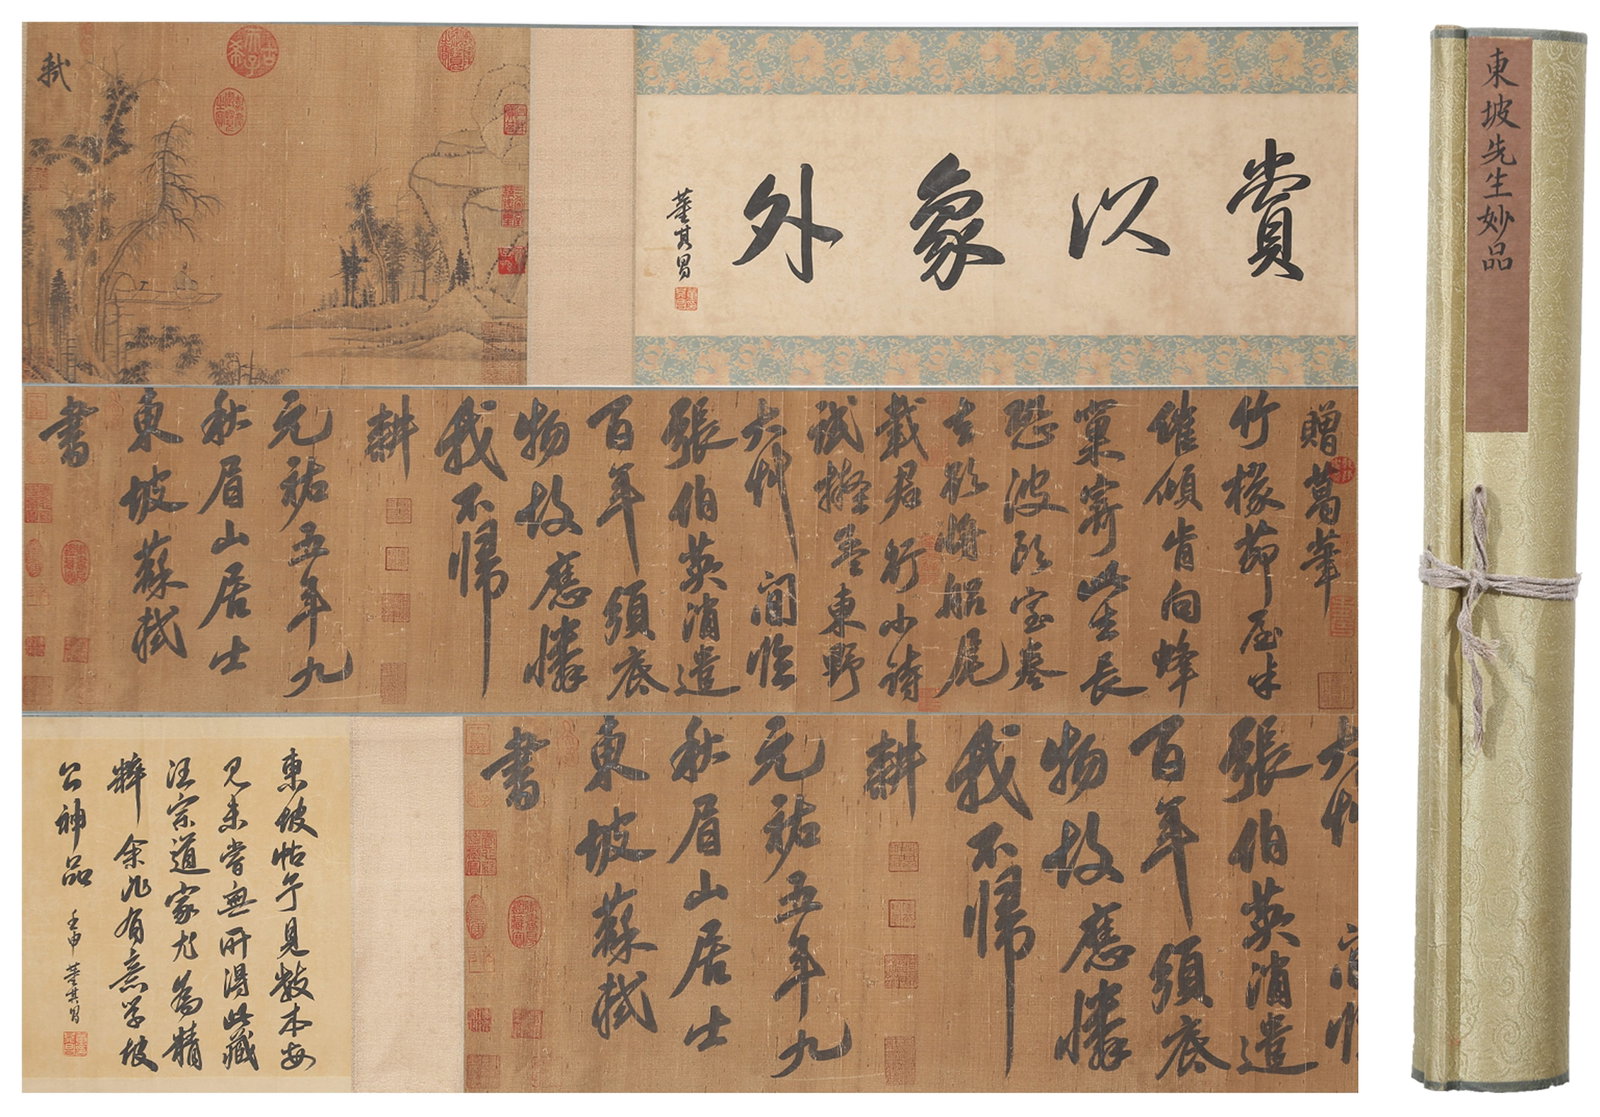 東坡先生妙品
賞以象外
董其昌
軾
贈葛葦
竹椽茆屋半
摧傾肯向蜂
窠寄此生長
恐波頭室卷
去欲將船尾
載君行小詩
試擬孟東野
大艸閒臨
張伯英消遣
百年須底
物故應憐
我不歸
耕
元祐五年九
秋眉山居士
東坡蘇軾
書
張伯英消遣
百年須底
物故應憐
我不歸
耕
元祐五年九
秋眉山居士
東坡蘇軾
書
東坡帖予見數本每
見未嘗無所得此藏
汪宗道家尤為精
粹余非有意學坡
公神品
壬申董其昌